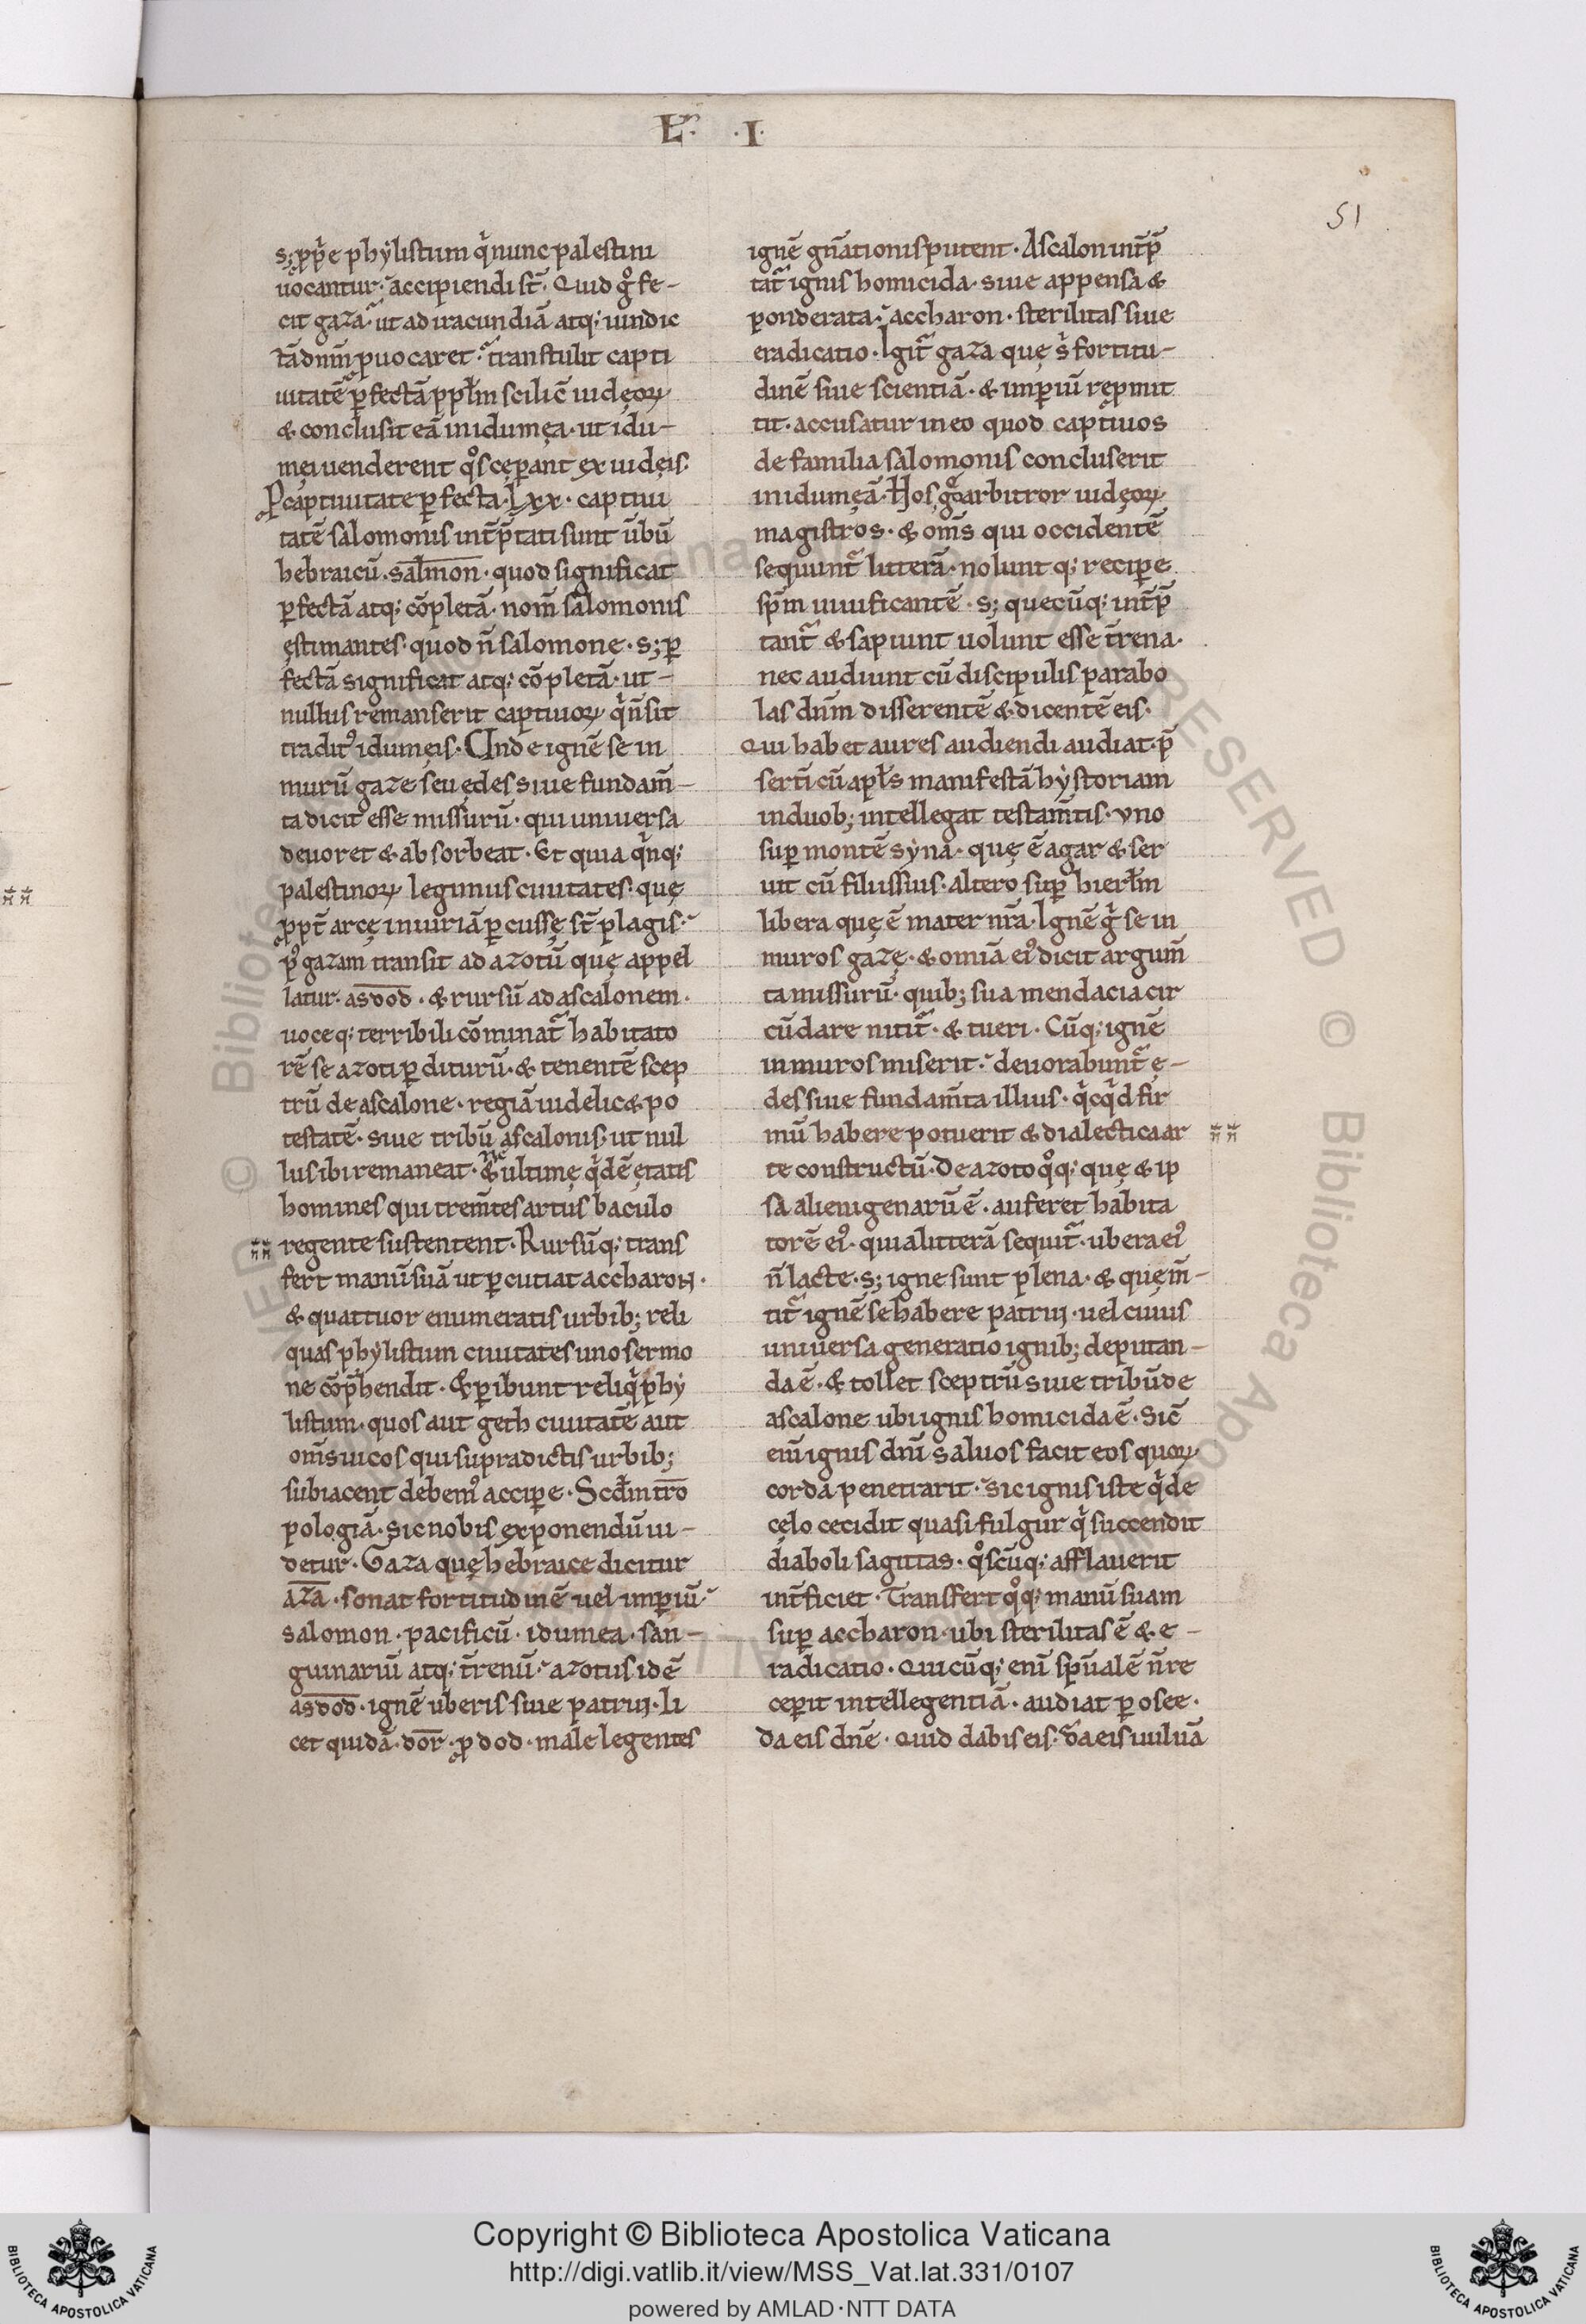 L̅. ·I·
51
s; ꝓp̾e phẏlistum q̾ nunc palestini
uocantur. accipiendi st̅. Quid gͦ fe-
cit gaza. ut ad iracundiā atq; uindic
tā dnm̅ ꝓuocaret. transtulit capti
uitatē ꝑfectā pp̅łm scilic̅ iudęoꝝ
& conclusit eā in idumęa. ut idu-
męi uenderent qͦs cęꝑant ex iudęis.
P captiuitate ꝑfecta. Lxx. captiui
tatē salomonis int̅p̅tati sunt ūbū
hebraicū. salmon. quod significat
ꝑfectā atq; cōpletā. nom̅ salomonis
ęstimantes. quod n̅ salomone. s; ꝑ
fectā significat atq; cōpletā. ut-
nullus remanserit captiuoꝝ q̾ n̅ sit
tradit᾽ idumęis. Unde ignē se in
murū gaze seu ędes siue fundam̅-
ta dicit esse missurū. qui uniuersa
deuoret & absorbeat. Et quia q̾nq;
palestinoꝝ legimus ciuitates. quę
ꝓpt̅ arcę iniuriā ꝑcussę st̅ plagis.
p᾽ gazam transit ad azotū quę appel
latur. asdod. & rursū ad ascalonem.
uoceq; terribili cōminat᷑ habitato
rē se azoti ꝑditurū. & tenentē scep
trū de ascalone. regiā uidelic& po
testatē. siue tribū ascalonis. ut nul
lus ibi remaneat. nę & ultimę q̾dē ętatis
homines qui trem̅tes artus baculo
regente sustentent. Rursūq; trans
fert manū suā ut ꝑcutiat accharoN.
& quattuor enumeratis urbib; reli
quas phẏlistum ciuitates uno sermo
ne cōp̅hendit. & ꝑibunt reliq̾ phẏ
listum. quos aut geth ciuitatē aut
om̅s uicos qui supradictis urbib;
subiacent debem᾽ accipe. Scd̅m tro
pologiā. sic nobis exponendū ui-
detur. Gaza quę hebraice dicitur
aza. sonat fortitudinē uel imꝑiū.
salomon. pacificū. idumea. san-
guinariū atq; t̅renū. azotus idē
asdod. ignē uberis siue patrui. li
cet quidā. dor. ꝓ dod. male legentes
ignē gn̅ationis putent. Ascalon int̅p̅
tat᷑ ignis homicida. siue appensa &
ponderata. accharon. sterilitas siue
eradicatio. Igit᷑ gaza quę s̾ fortitu-
dinē siue scientiā. & imꝑiū rępmit
tit. accusatur in eo quod captiuos
de familia salomonis concluserit
in idumęā. Hos gͦ arbitror iudęoꝝ
magistros. & om̅s qui occidentē
sequunt᷑ litterā. nolunt q; recipe
sp̅m uiuificantē. s; quecūq; int̅p̅
tant᷑ & sapiunt uolunt esse t̅rena.
nec audiunt cū discipulis parabo
las dn̅m disserentē & dicentē eis.
Qui habet aures audiendi audiat. p̅
serti cū apłs manifestā hẏstoriam
in duob; intellegat testam̅tis. vno
suꝑ montē sẏna. quę ē agar & ser
uit cū filiis suis. Altero suꝑ hierłm
libera quę ē mater nr̅a. Ignē g̾ se in
muros gazę. & omīa ei᾽ dicit argum̅
ta missurū. quib; sua mendacia cir
cūdare nitit᷑. & tueri. Cūq; ignē
in muros miserit. deuorabunt᷑ ę-
des siue fundam̅ta illius. q̾cq̾d fir
mū habere potuerit & dialectica ar
te constructū. De azoto qͦq; quę & ip
sa alienigenarū ē. auferet habita
torē ei᾽. quia litterā sequit᷑. ubera ei᾽
n̅ lacte. s; igne sunt plena. & quę m̅-
tit᷑ ignē se habere patrui. uel cuius
uniuersa generatio ignib; deputan-
da ē. & tollet sceptrū siue tribū de
ascalone ubi ignis homicida ē. Sic̅
em̅ ignis dn̅i saluos facit eos quoꝝ
corda penetrarit. sic ignis iste q̾ de
cęlo cecidit quasi fulgur q̾ succendit
diaboli sagittas. qͦscūq; afflauerit
int̅ficiet. Transfert qͦq; manū suam
suꝑ accharon. ubi sterilitas ē & e-
radicatio. Quicūq; eni̅ sp̅ualē n̅ re
ceꝑit intellegentiā. audiat ꝑ osee.
da eis dn̅e. Quid dabis eis. da eis uuluā
Copyright © Biblioteca Apostolica Vaticana
http://digi.vatlib.it/view/MSS_Vat.lat.331/0107
powered by AMLAD·NTT DATA
BIBLIOTECA APOSTOLICA VATICANA
BIBLIOTECA APOSTOLICA VATICANA